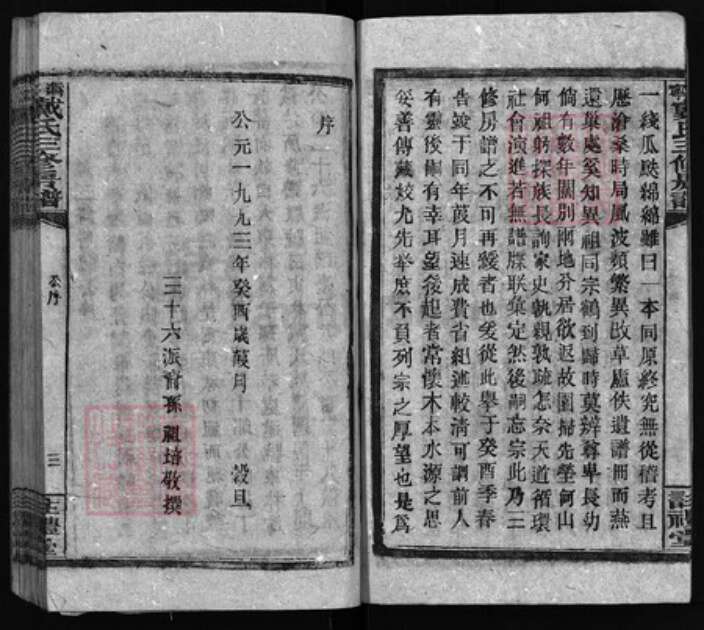 一綫瓜瓞綿綿雖曰一本同原終究無從稽考且
歷滄桑時局風波頻繁異改草廬佚遺譜冊而燕
還巢處奚知異祖同宗鶴到歸時莫辨尊卑長幼
倘有數年闊別兩地分居欲返故園掃先塋何山
何祖躬探族長詢家史孰親孰疏怎奈天道循環
社會演進若無譜牒联彙定然後嗣忘宗此乃三
修房譜之不可再緩者也爰從此舉于癸酉季春
告竣于同年葭月速成費省紀述較清可謂前人
有靈後嗣有幸耳望後起者常懷木本水源之思
妥善傳藏效尤先举庶不負列宗之厚望也是爲
序
公元一九九三年癸酉歲葭月 穀旦
三十六派裔孫祖培敬撰
戴氏三修房譜
卷序
三